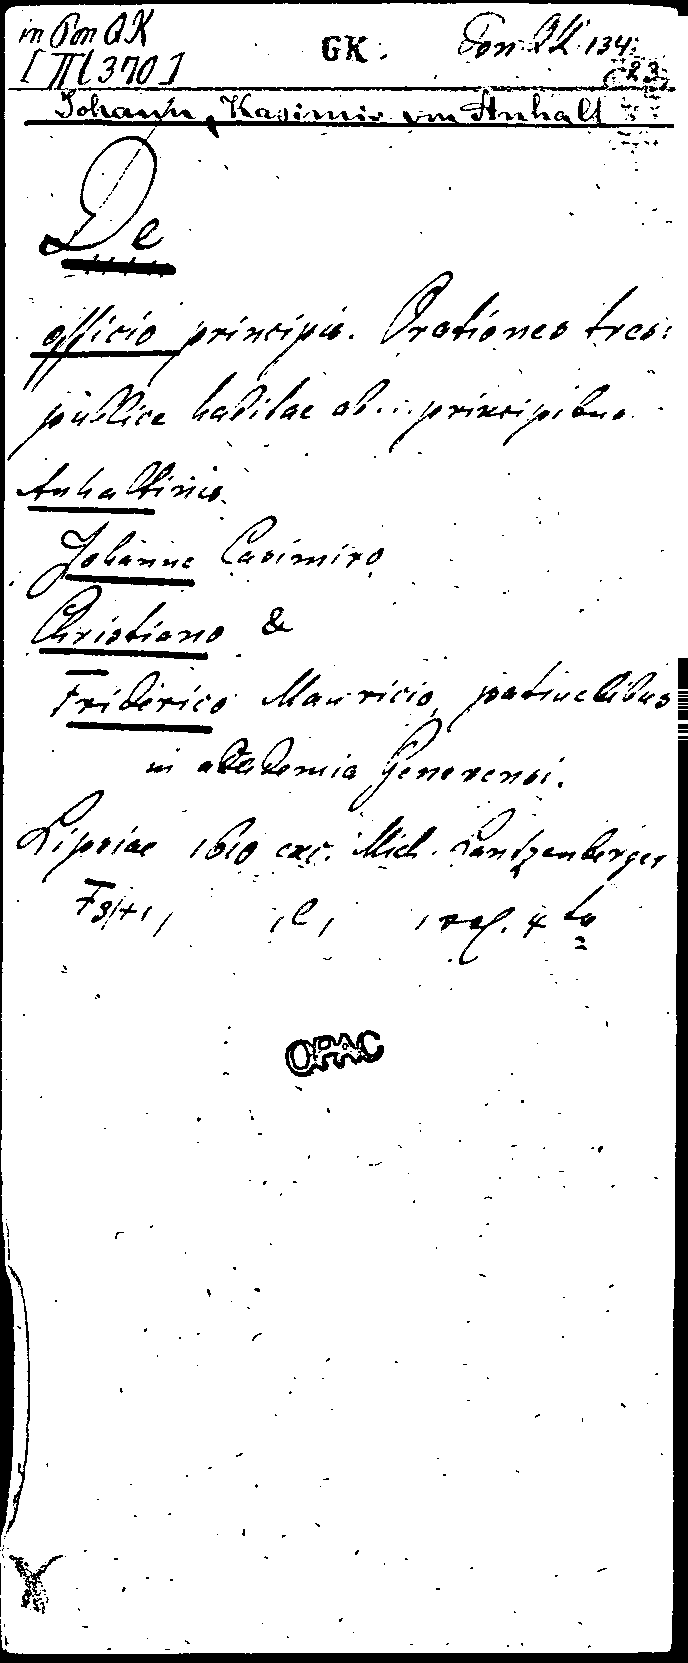 in Pon QK
[Πl 370]
GK.
Pon QK 134:
23
Johann, Kasimir von Anhalt
De
officio principis. Orationes tres:
publice habitae ab... principibus
Anhaltinis.
Johanne Casimiro
Christiano &
Friderico Mauricio, patruelibus
in academia Genevensi.
Lipsiae 1610 exc. Mich. Lantzenberger
4 to
OPAC